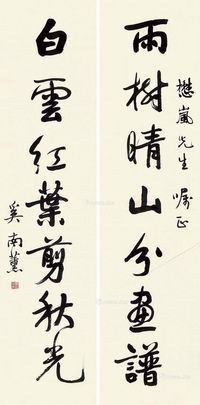 懋嵐先生 嘱正
雨樹晴山分畫譜
白雲紅葉剪秋光
奚南薰